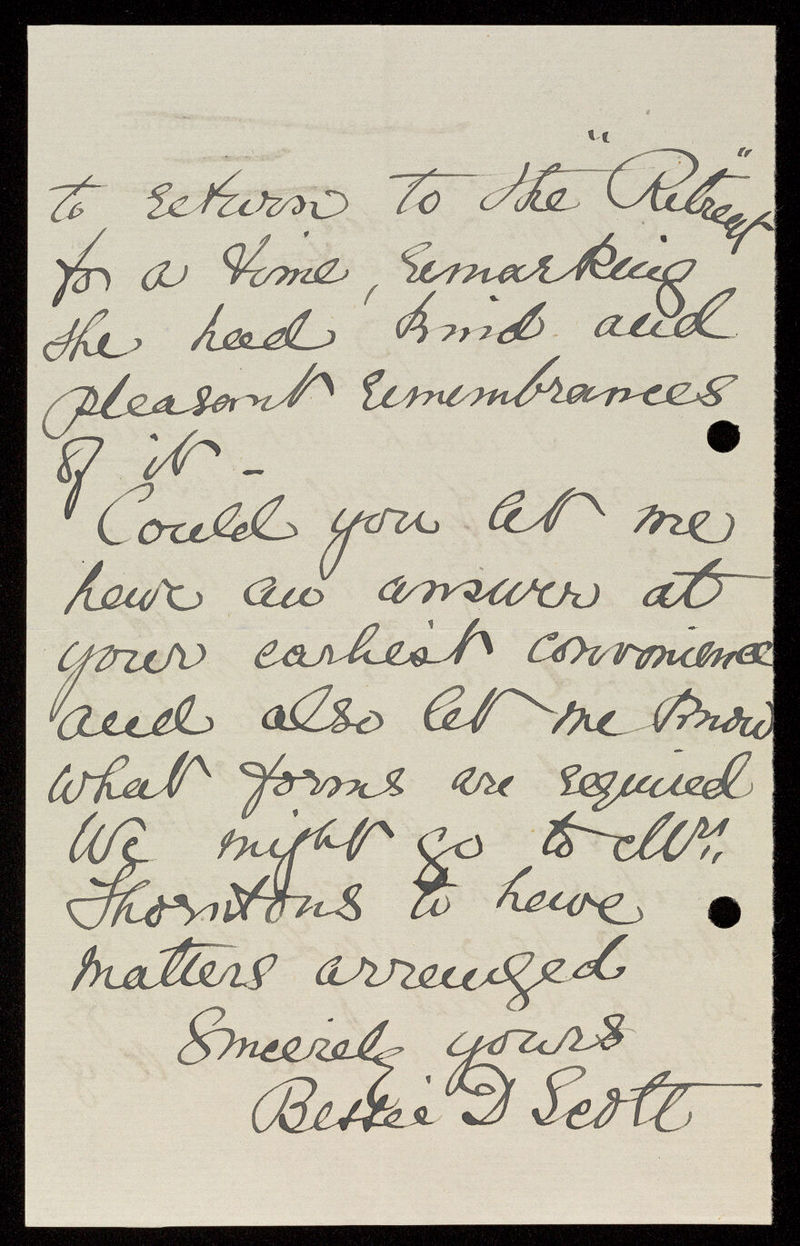 to return to the "Retreat"
for a time, remarking
she had kind and
pleasant remembrances
of it -
Could you let me
have an answer at
your earliest convenience
and also let me know
what forms are required
We might go to Mrs.
Thorntons to have
matters arranged
Sincerely yours
Bessie D Scott